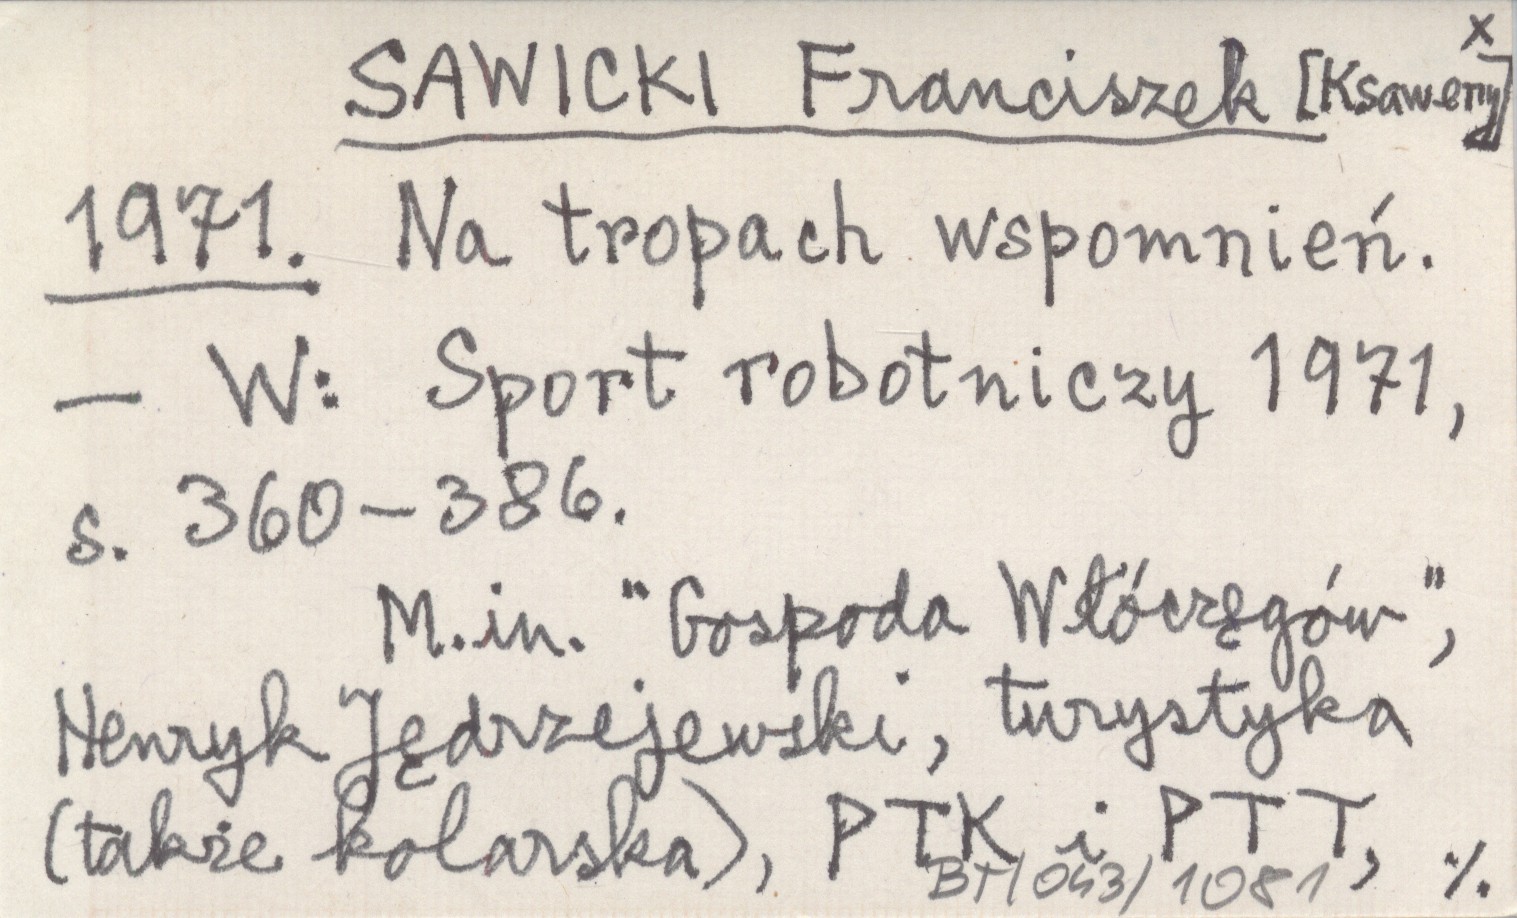 x
SAWICKI Franciszek [Ksawery]
1971. Na tropach wspomnień.
— W: Sport robotniczy 1971,
s. 360-386.
M.in. "Gospoda Włóczęgów",
Henryk Jędrzejewski, turystyka
(także kolarska), PTK i PTT, ./.
BTI/043/1081